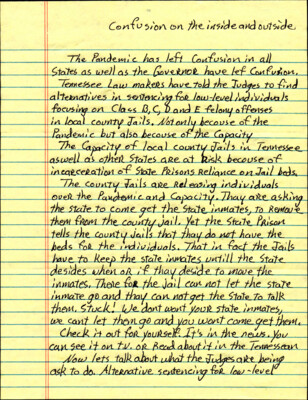 Confusion on the inside and outside
The Pandemic has left Confusion in all
States as well as the Governor have lef Confusion.
Temessee Law makers have told the Judges to find
alternatives in sentencing for low-level individuals
focusing on Class B, C, D and E felony offenses
in local county Jails. Not only because of the
Pandemic but also because of the Capacity
The Capacity of local county Jails in Tennessee
aswell as other States are at Risk because of
incarceration of State Prisons reliance on Jail beds.
The county Jails are releasing individuals
over the Pandamic and Capacity. Thay are asking
the state to come get the State inmates, to remove
them from the county jail. Yet the State Prison
tells the county Jails that thay do not have the
beds for the individuals. That in fact the Jails
have to keep the state inmates untill the State
desides when or if thay deside to move the
inmates. There for the Jail can not let the state
inmate go and thay can not get the State to talk
them. Stuck! We dont wont your state inmates,
we cant let them go and you wont come get them.
Check it out for yourself. It's in the news. You
can see it on t.v. or Read about it in the Tennessean
Now lets talk about what the Judges are being
ask to do. Alternative sentencing for low-level